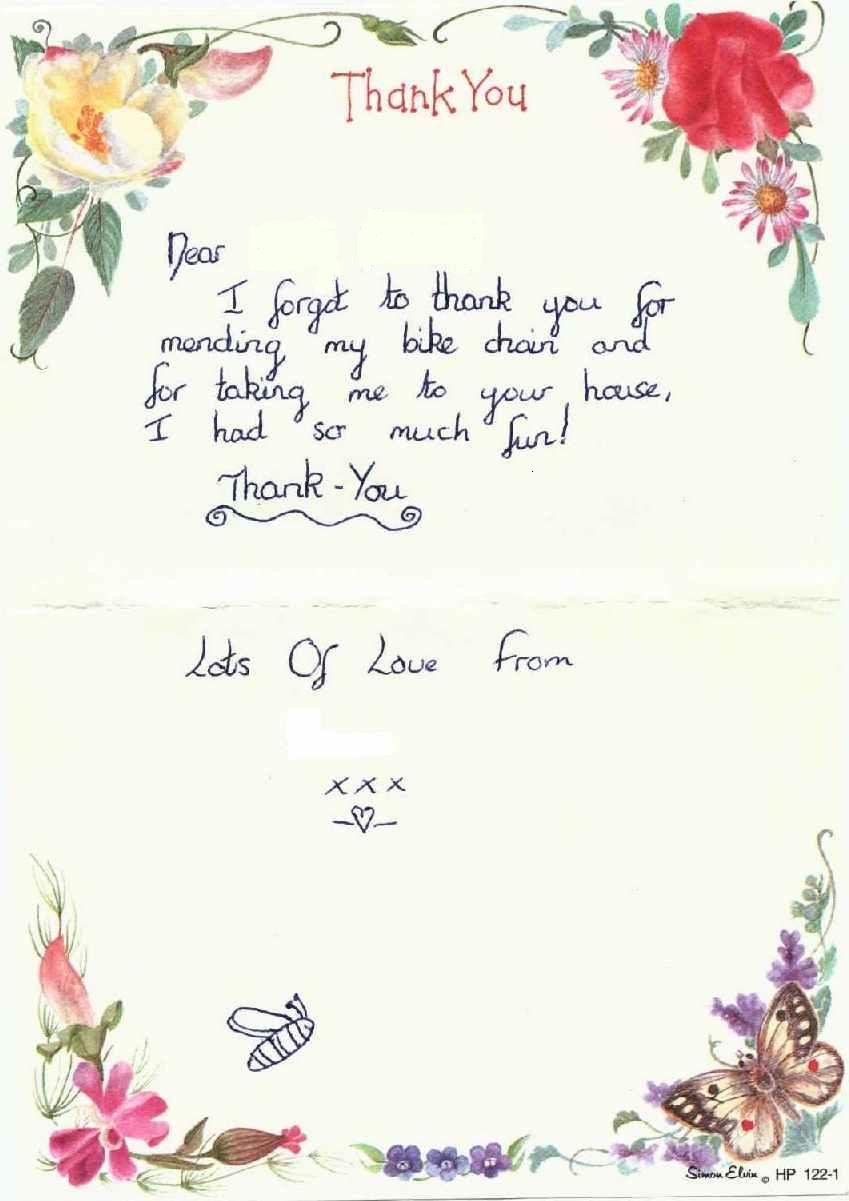 Thank You
Dear
I forgot to thank you for
mending my bike chain and
for taking me to your house,
I had so much fun!
Thank-You
Lots Of Love From
x x x
Simon Elvin © HP 122-1